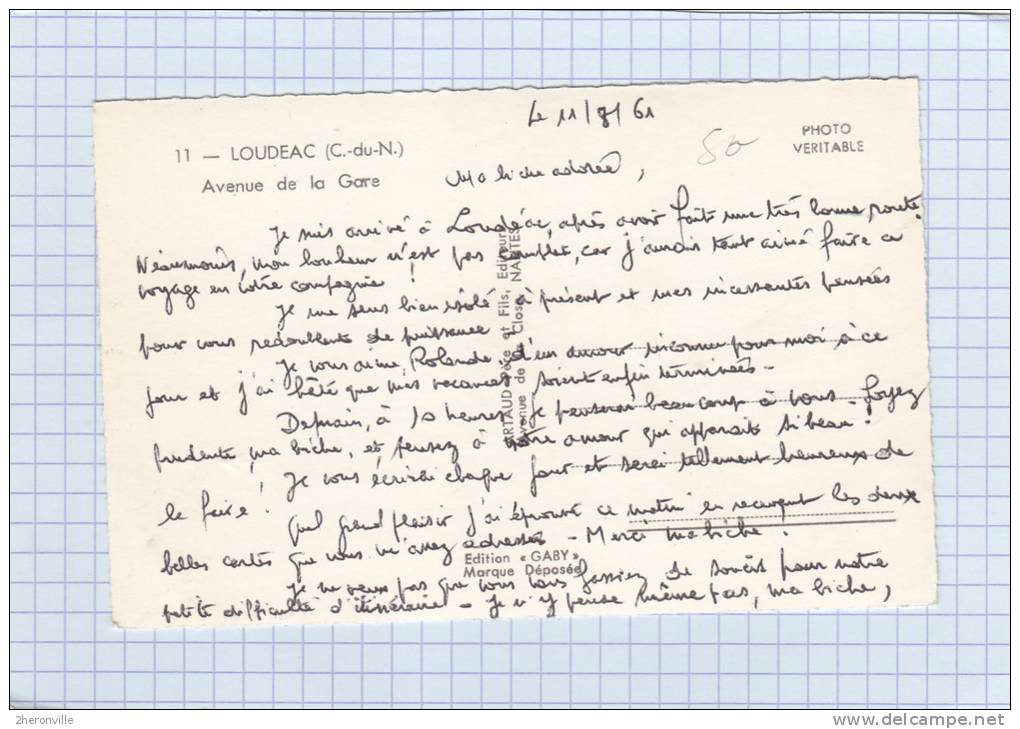 Le 11/8/61
50
PHOTO
VERITABLE
11 — LOUDEAC (C.-du-N.)
Avenue de la Gare
Ma biche adorée,
Je suis arrivé à Loudéac, après avoir fait une très bonne route.
Néanmoins, mon bonheur n'est pas complet, car j'aurais tant aimé faire ce
voyage en votre compagnie !
Je me sens bien isolé à présent et mes incessantes pensées
pour vous redoublent de puissance
Je vous aime, Rolande, d'un amour inconnu pour moi à ce
jour et j'ai hâte que mes vacances soient enfin terminées -
Demain, à 10 heures, je penserai beaucoup à vous - Soyez
prudente, ma biche, et pensez à notre amour qui apparait si beau !
Je vous écrirai chaque jour et serai tellement heureux de
le faire !
Quel grand plaisir j'ai éprouvé ce matin en recevant les deux
belles cartes que vous m'avez adressées - Merci ma biche !
Je ne veux pas que vous vous fassiez de soucis pour notre
petite difficulté d'itinéraire - Je n'y pense même pas, ma biche,
ARTAUD Père et Fils, Editeurs
Avenue de la Close, NANTES
Edition « GABY »
Marque Déposée
2heronville
http://www.delcampe.net